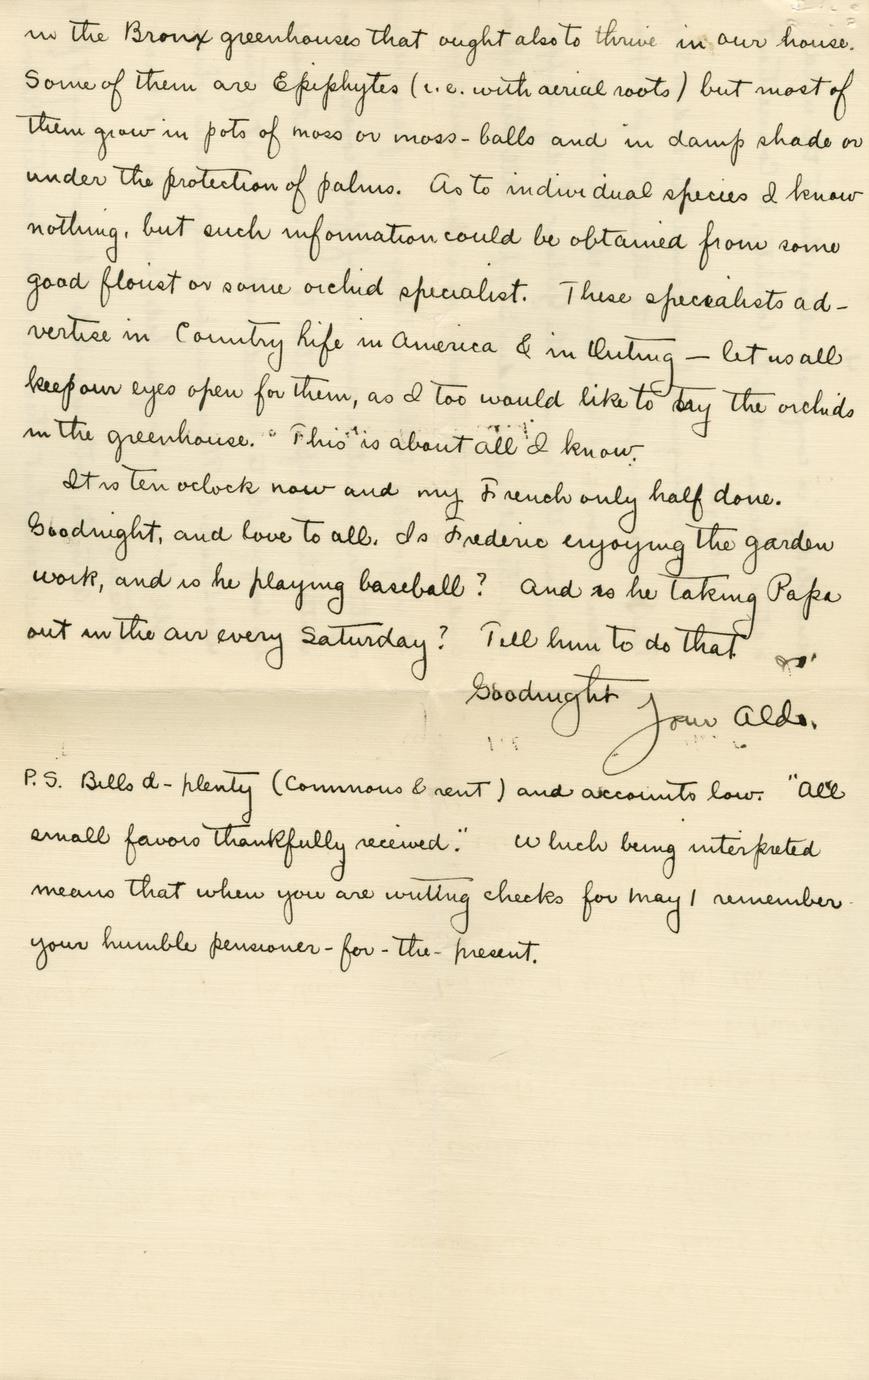 in the Bronx greenhouses that ought also to thrive in our house.
Some of them are Epiphytes (i.e. with aerial roots) but most of
them grow in pots of moss or moss-balls and in damp shade or
under the protection of palms. As to individual species I know
nothing, but such information could be obtained from some
good florist or some orchid specialist. These specialists ad-
vertise in Country Life in America & in Outing — let us all
keep our eyes open for them, as I too would like to try the orchids
in the greenhouse. This is about all I know.
It is ten oclock now and my French only half done.
Goodnight, and love to all. Is Frederic enjoying the garden
work, and is he playing baseball? And is he taking Papa
out in the air every Saturday? Tell him to do that
Goodnight
Your Aldo.
P.S. Bills a-plenty (Commons & rent) and accounts low. "All
small favors thankfully received." Which being interpreted
means that when you are writing checks for May 1 remember
your humble pensioner-for-the-present.